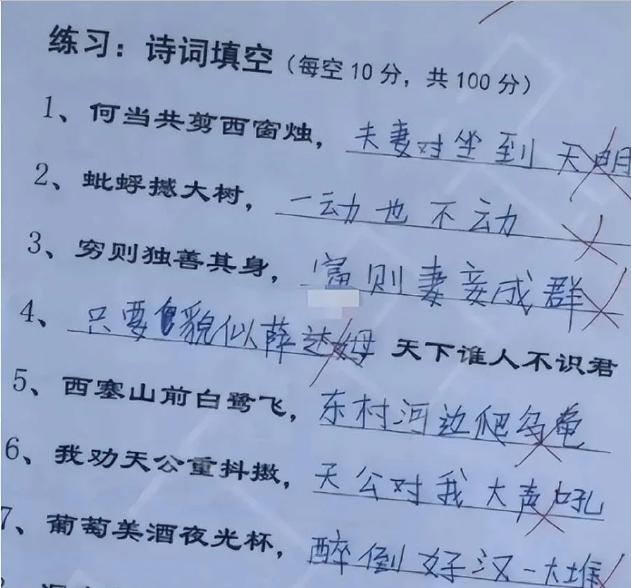 练习：诗词填空（每空10分，共100分）
1、何当共剪西窗烛，夫妻对坐到天明
2、蚍蜉撼大树，一动也不动
3、穷则独善其身，富则妻妾成群
4、只要貌似薛达姆 天下谁人不识君
5、西塞山前白鹭飞，东村河边爬乌龟
6、我劝天公重抖擞，天公对我大声吼
7、葡萄美酒夜光杯，醉倒好汉一大堆